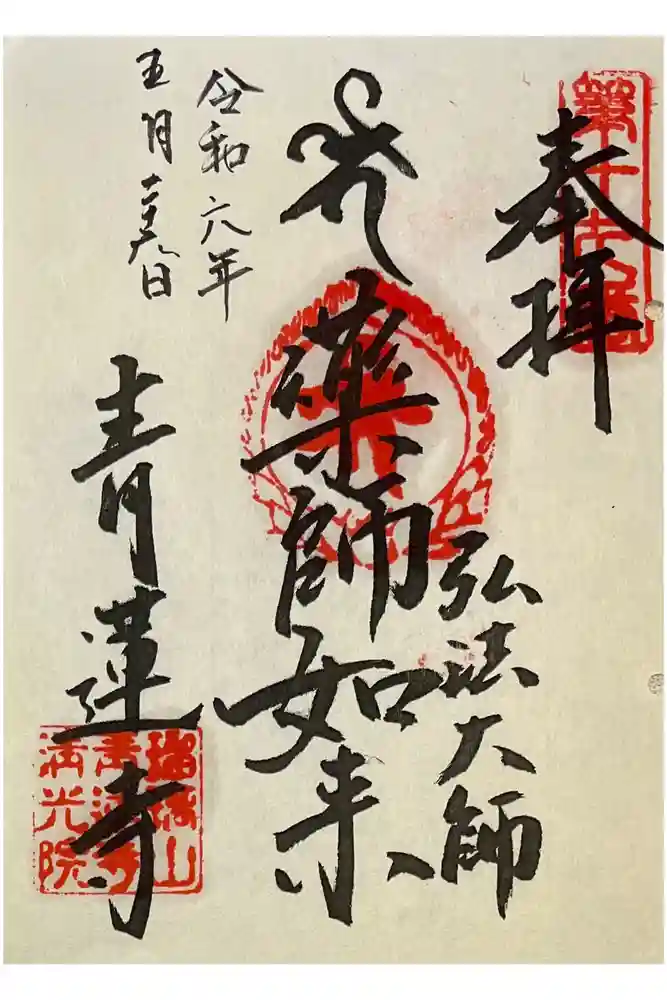 奉拝
弘法大師
薬師如来
令和六年
五月二十九日
青蓮寺
瑠璃山
青蓮寺
満光院